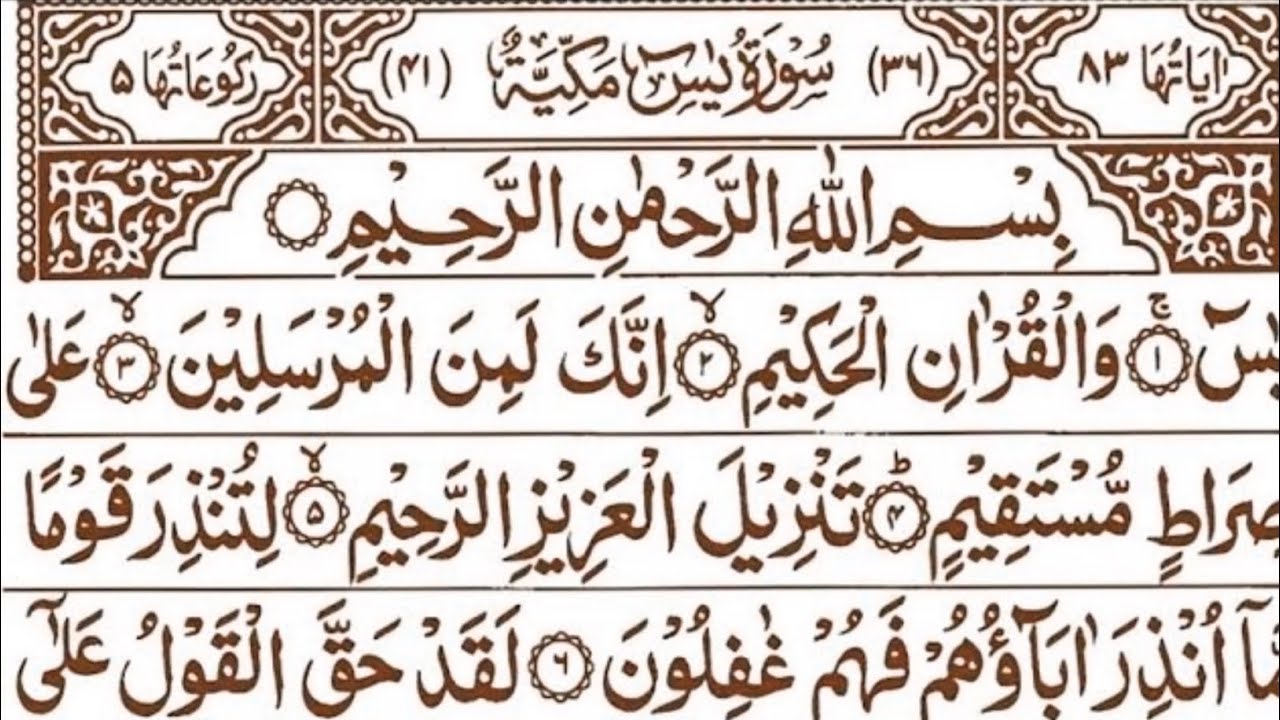 اٰيَاتُهَا ٨٣ (٣٦) سُوْرَةُ يٰسٓ مَكِّيَّةٌ (٤١) رَكُوْعَاتُهَا ٥
بِسْمِ اللّٰهِ الرَّحْمٰنِ الرَّحِيْمِ
يٰسٓ ۚ ﴿١﴾ وَالْقُرْاٰنِ الْحَكِيْمِ ۙ ﴿٢﴾ اِنَّكَ لَمِنَ الْمُرْسَلِيْنَ ۙ ﴿٣﴾ عَلٰى
صِرَاطٍ مُّسْتَقِيْمٍ ؕ ﴿٤﴾ تَنْزِيْلَ الْعَزِيْزِ الرَّحِيْمِ ۙ ﴿٥﴾ لِتُنْذِرَ قَوْمًا
مَّاۤ اُنْذِرَ اٰبَآؤُهُمْ فَهُمْ غٰفِلُوْنَ ﴿٦﴾ لَقَدْ حَقَّ الْقَوْلُ عَلٰٓى